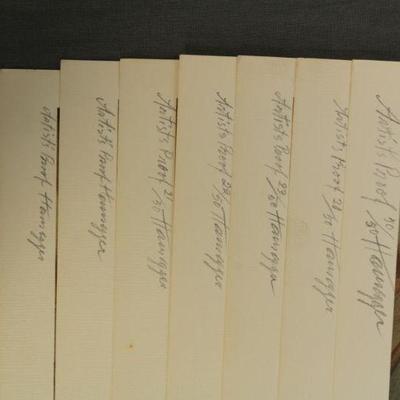 Artist's Proof Honegger
Artist's Proof Honegger
Artist's Proof 21/50 Honegger
Artist's Proof 22/50 Honegger
Artist's Proof 23/50 Honegger
Artist's Proof 28/50 Honegger
Artist's Proof 30/50 Honegger